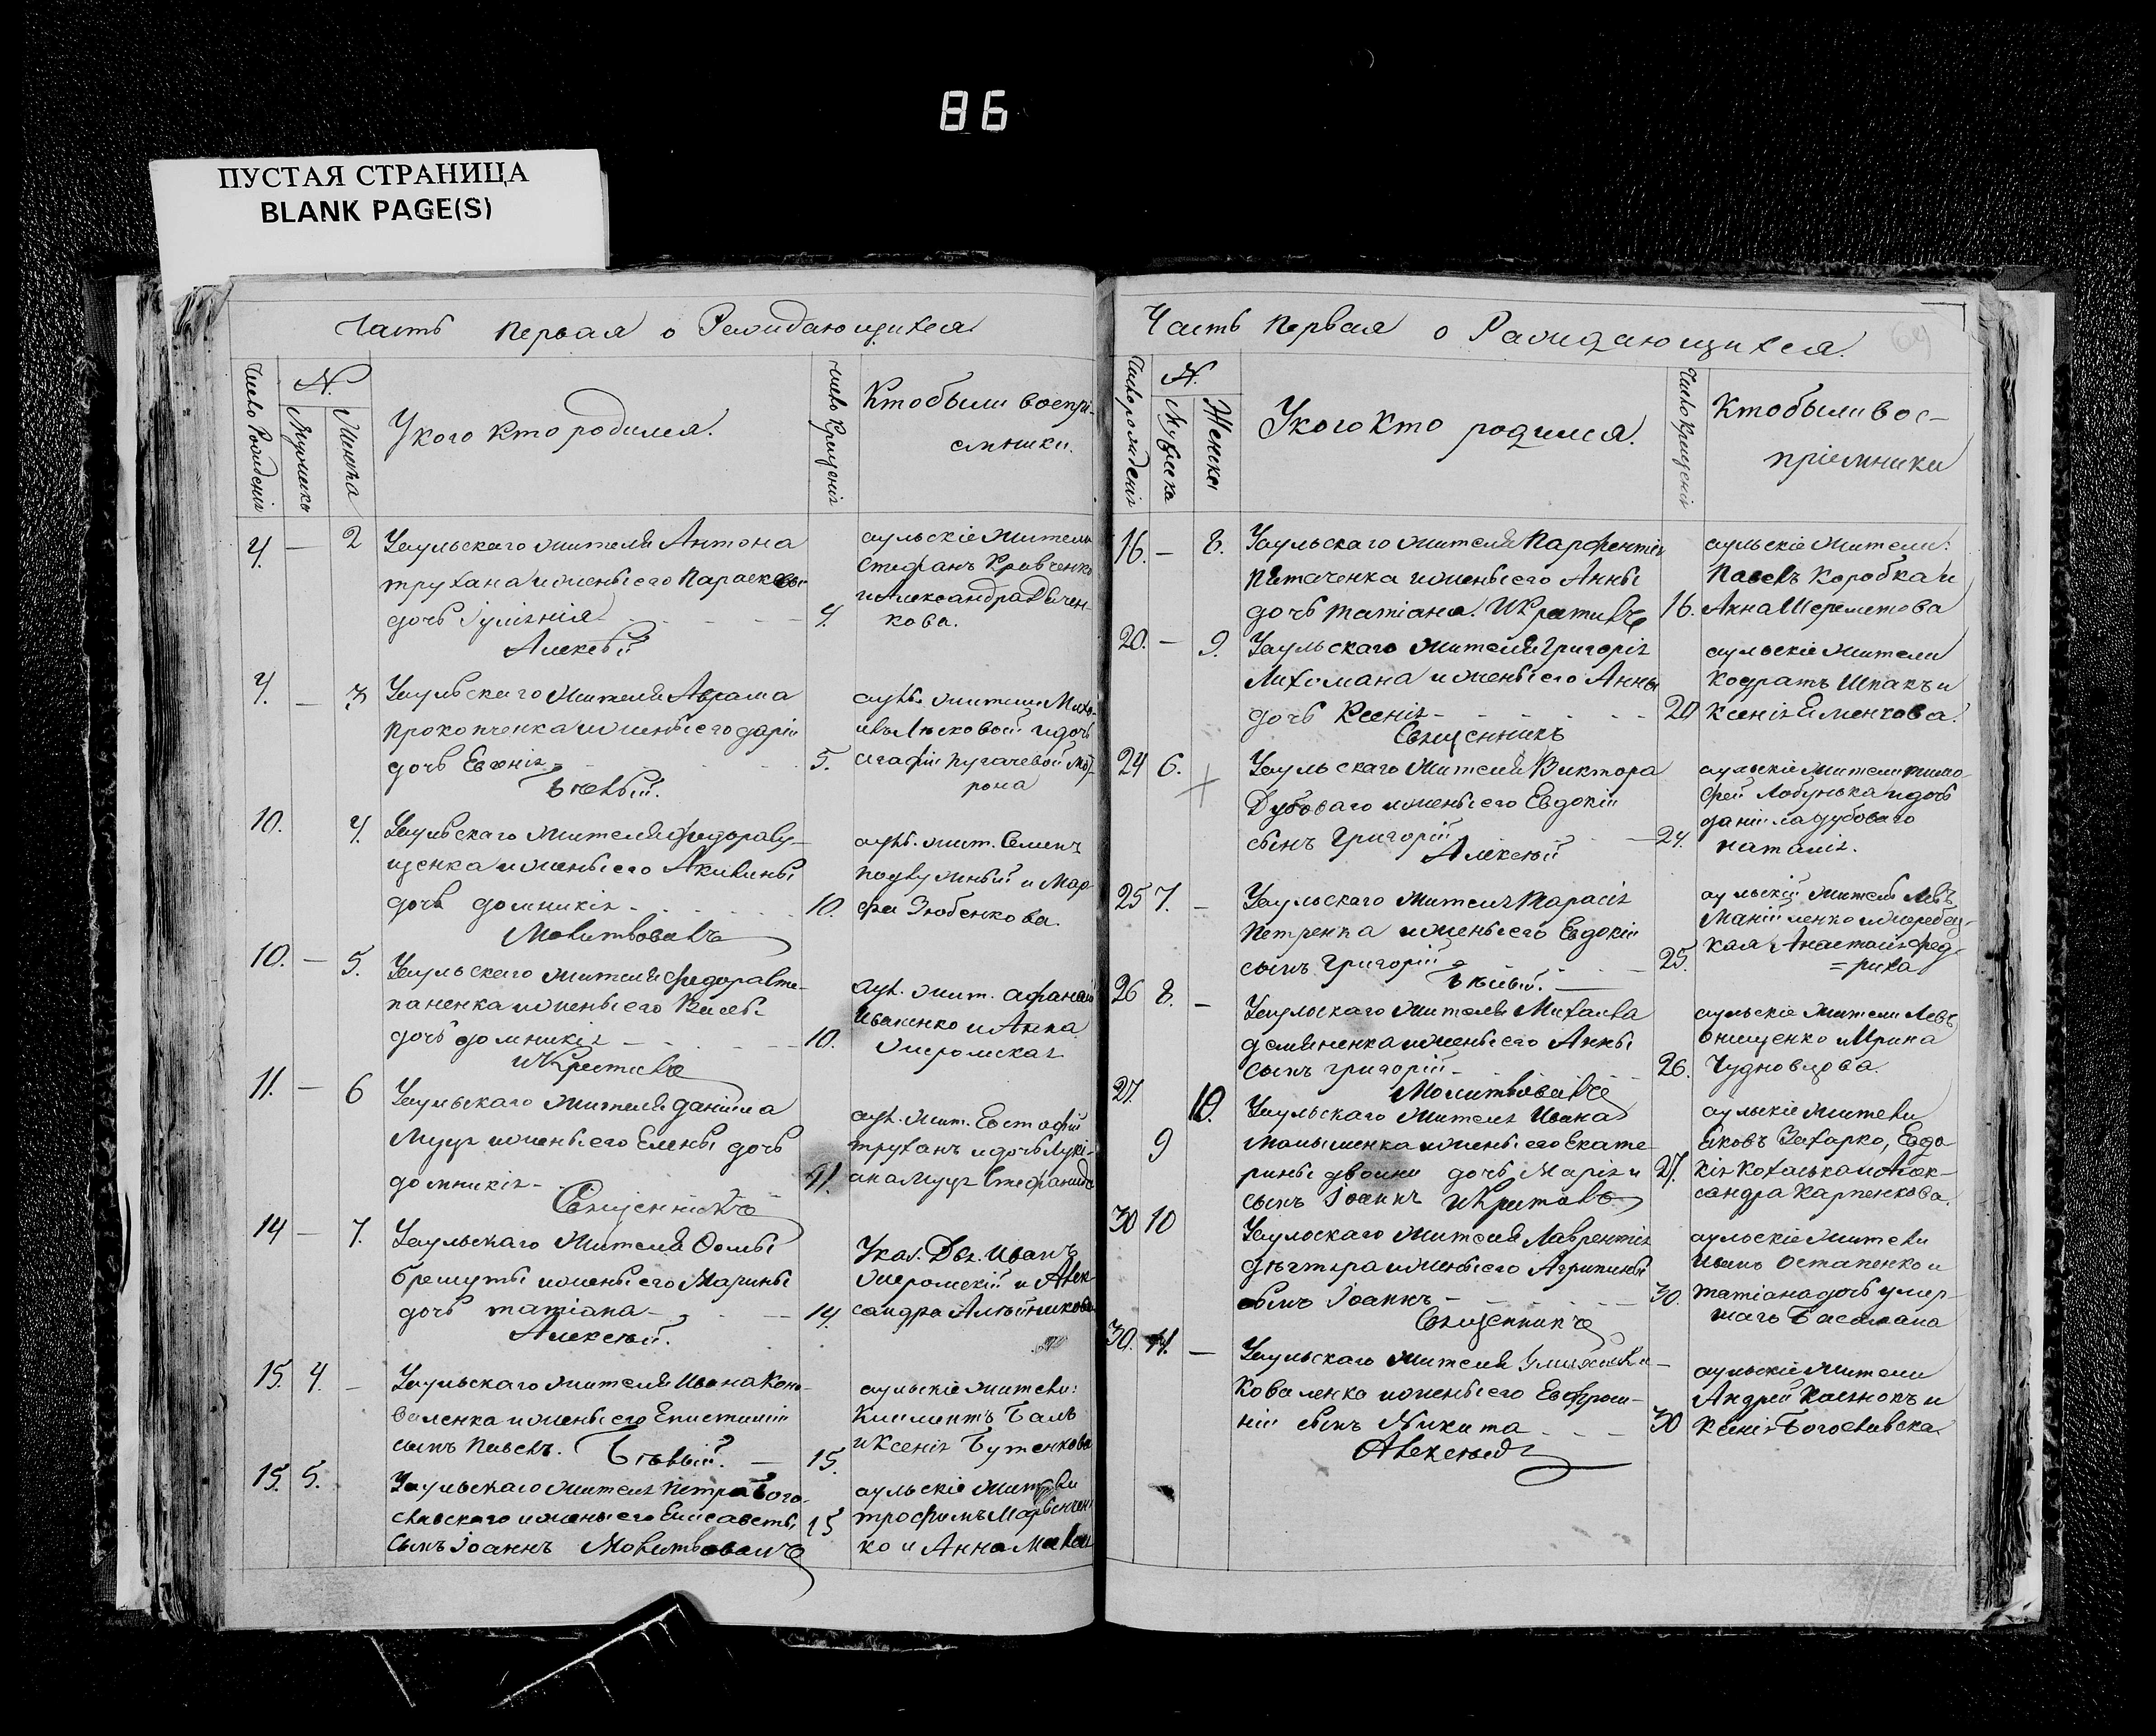 86
ПУСТАЯ СТРАНИЦА
BLANK PAGE(S)
Часть первая о Рождающихся
Число Рождения
N.
Мужеска
Женска
У кого кто родился.
Число Крещенія
Кто были воспрі-
емники.
4. — 2
Уаульскаго жителя Антона
трухана и жены его Параскевы
дочь Іуліянія
Алексѣй
4.
аульскіе жители
Стефанъ Кравченко
и Александра
кова.
4. — 3
Уаульскаго жителя Аврама
Прокопченка и жены его даріи
дочь Евѳнія
Бѣлый.
5.
Агафіи Пугачевой Мот-
рона
10. 4.
Уаульскаго жителя Федора
щенка и жены его Акилины
дочь домникія
Молитвовалъ
10.
аульс. жит. Семенъ
и Мар-
фа Зюбенкова.
10. — 5.
Уаульскаго жителя Федора Сте-
паненка и жены его
дочь домникія
и Крестилъ
10.
аул. жит. Афанасій
Иваненко и Анна
Жеромская
11. — 6
Уаульскаго жителя даніила
Муца и жены его Елены дочь
домникія
Священникъ
11.
аул. жит. Евстафій
труханъ и дочь Лукі-
ана Муца Стефанида
14 — 7.
Уаульскаго жителя Ѳомы
брешуты и жены его Марины
дочь татіана
Алексѣй.
14.
Указ. Дьч. Иванъ
Жеромскій и Алек-
сандра Алейникова
15. 4. —
Уаульскаго жителя Ивана Коно-
валенка и жены его Епистиміи
сынъ Павелъ. Бѣлый.
15.
аульскіе жители:
Климентъ Баль
и Ксенія Бутенкова
15. 5.
Уаульскаго жителя Петра Бого-
славскаго и жены его Елисаветы
сынъ Іоаннъ Молитвовалъ
15
аульскіе жители
трофимъ
ко и Анна
Часть первая о Рождающихся.
69
Число рожденія
N.
Мужеска
Женска
У кого кто родился.
Число Крещенія
Кто были вос-
пріемники
16. — 8.
Уаульскаго жителя Парфентія
Пятаченка и жены его Анны
дочь татіана. и Крестилъ
16.
аульскіе жители:
Павелъ Коробка и
Анна Шереметова
20. — 9.
Уаульскаго жителя Григорія
Лихомана и жены его Анны
дочь Ксенія
Священникъ
20
аульскіе жители
Кодратъ Шпакъ и
Ксенія Еменкова.
24 6.
Уаульскаго жителя Виктора
Дубоваго и жены его Евдокіи
сынъ Григорій
Алексѣй
24.
аульскіе жители тимо-
фей Лобунька и дочь
даніила дубоваго
наталія.
25 7. —
Уаульскаго жителя Тарасія
Петренка и жены его Евдокіи
сынъ Григорій
Бѣлый.
25.
аульскій житель Левъ
Маніиленко и жеребец-
кая Анастасія Фед-
=риха
26 8. —
Уаульскаго жителя Михаила
демяненка и жены его Анны
сынъ григорій
Молитвовалъ
26.
аульскіе жители Левъ
Онищенко и Ирина
Чудновцова.
27. 10.
9
Уаульскаго жителя Ивана
и жены его Екате-
рины двойни дочь Марія и
сынъ Іоаннъ и Крестилъ
27.
аульскіе жители
Яковъ Захарко, Евдо-
кія и Алек-
сандра Карпенкова.
30 10
Уаульскаго жителя Лаврентія
и жены его Агрипины
сынъ Іоаннъ
Священникъ
30.
аульскіе жители
Остапенко и
татіана дочь умер-
шаго Басамана
30. 11. —
Уаульскаго жителя
Коваленка и жены его Евфроси-
ніи сынъ Никита
Алексѣй
30
аульскіе жители
Андрей и
Ксенія Богославска.